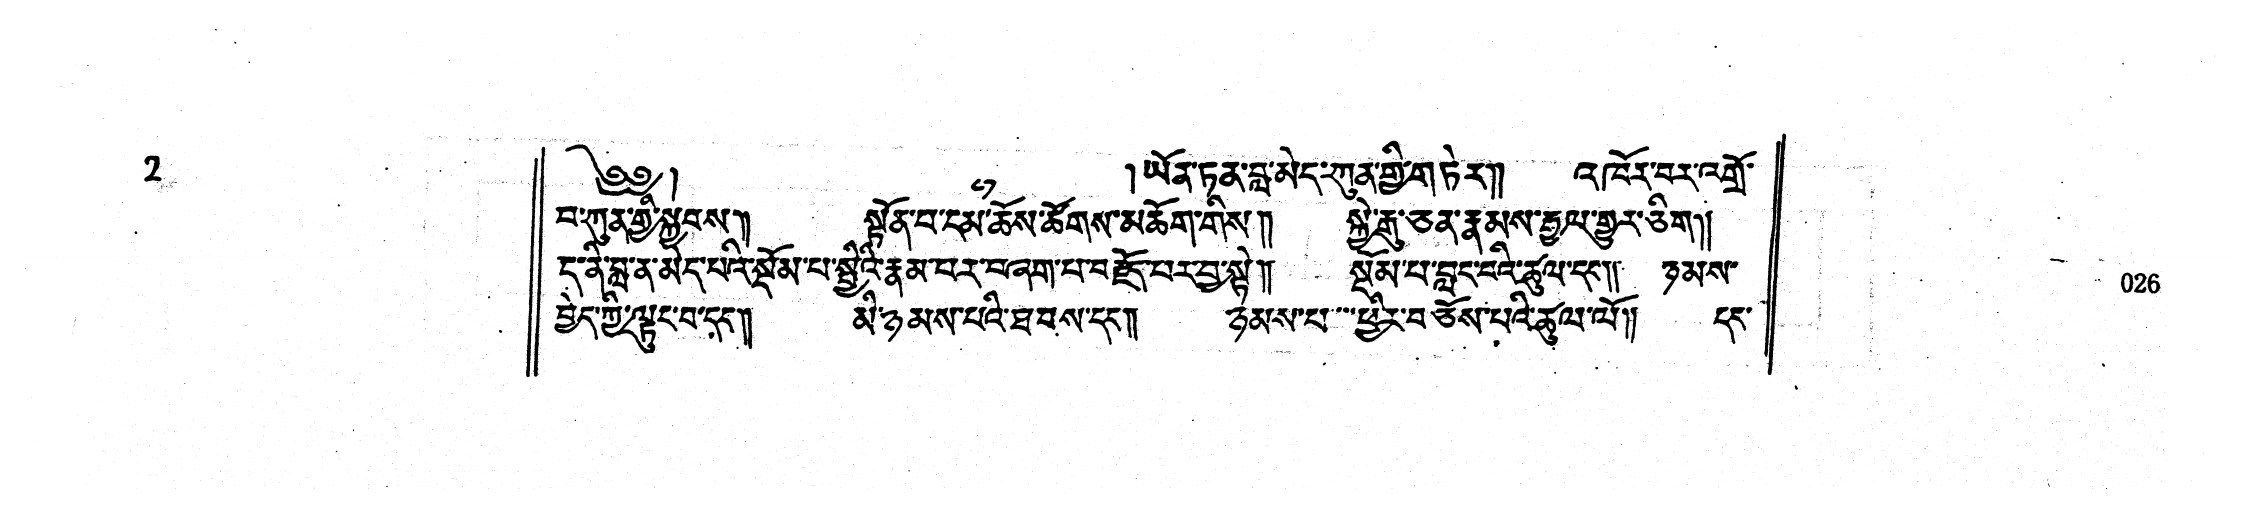 2
༄༅། །ཡོན་ཏན་བླ་མེད་ཀུན་གྱི་གཏེར།། འཁོར་བར་འགྲོ་
བ་ཀུན་གྱི་སྐྱབས།། སྟོན་པ་དམ་ཆོས་ཚོགས་མཆོག་གིས།། སྐྱེ་རྒུ་ཅན་རྣམས་རྒྱལ་གྱུར་ཅིག།།
ད་ནི་བླ་ན་མེད་པའི་སྡོམ་པ་སྤྱིའི་རྣམ་པར་བཞག་པ་བརྗོད་པར་བྱ་སྟེ།། སྡོམ་པ་བླང་བའི་ཚུལ་དང༌།། ཉམས་
བྱེད་ཀྱི་ལྟུང་བ་དང༌།། མི་ཉམས་པའི་ཐབས་དང༌།། ཉམས་པ་ཕྱིར་བཅོས་པའི་ཚུལ་ལོ།། དང་
026